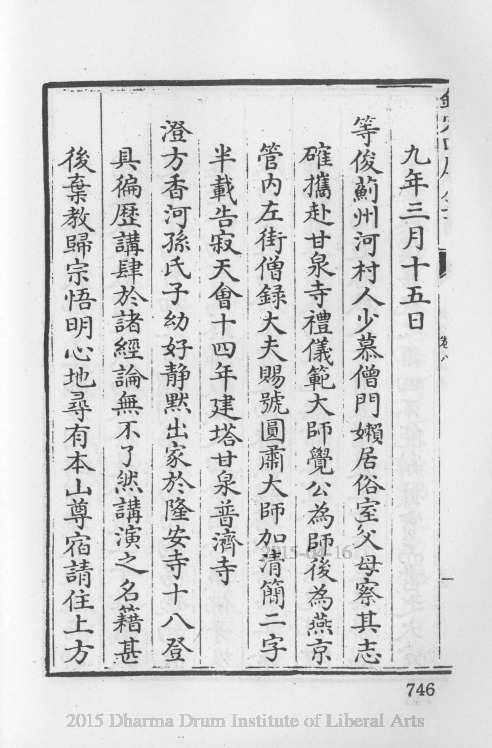 九年三月十五日
等俊薊州河村人少慕僧門嬾居俗室父母察其志
確攜赴甘泉寺禮儀範大師覺公為師後為燕京
管内左街僧録大夫賜號圓肅大師加清簡二字
半載告寂天會十四年建塔甘泉普濟寺
澄方香河孫氏子幼好静默出家於隆安寺十八登
具徧歴講肆於諸經論無不了然講演之名藉甚
後棄教歸宗悟明心地尋有本山尊宿請住上方
2015-04-16
746
2015 Dharma Drum Institute of Liberal Arts